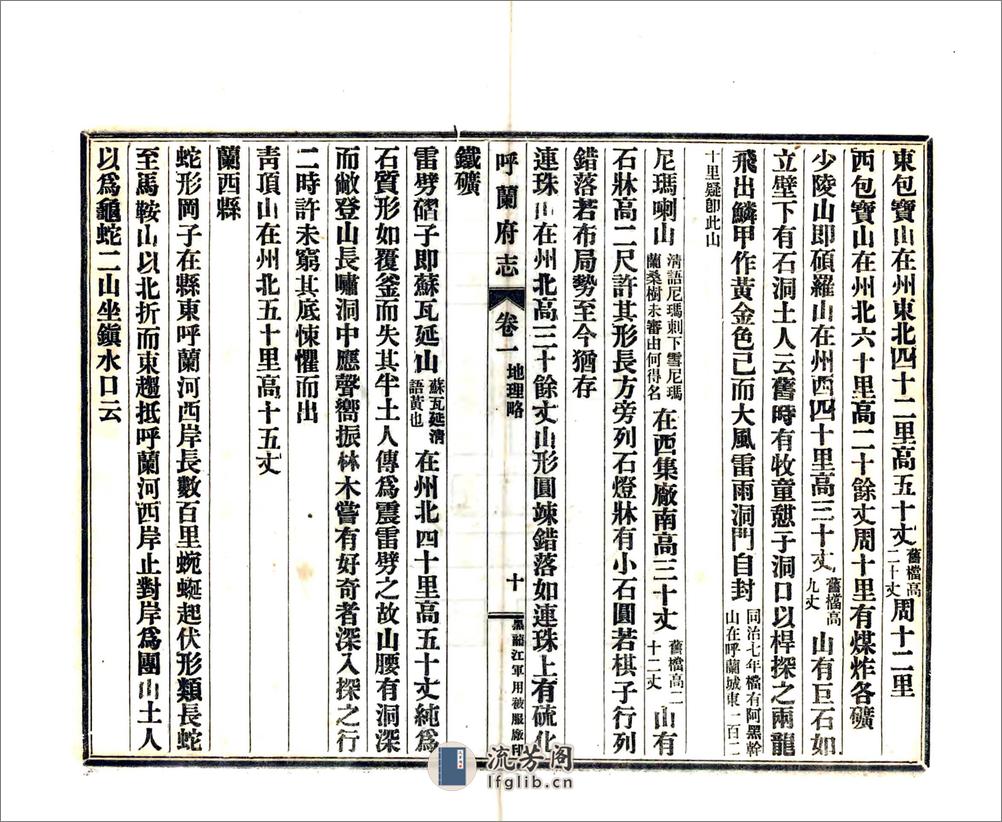 東包寶山在州東北四十二里高五十丈舊檔高二十丈周十二里
西包寶山在州北六十里高二十餘丈周十里有煤炸各礦
少陵山即碩羅山在州西四十里高三十丈舊檔高九丈山有巨石如
立壁下有石洞土人云舊時有牧童憩于洞口以桿探之兩龍
飛出鱗甲作黃金色已而大風雷雨洞門自封同治七年檔有阿黑幹山在呼蘭城東二百二
十里疑卽此山
尼瑪喇山清語尼瑪刺下雪尼瑪蘭桑樹未審由何得名在西集廠南高三十丈舊檔高二十二丈山有
石牀高二尺許其形長方旁列石燈牀有小石圓若棋子行列
錯落若布局勢至今猶存
連珠山在州北高三十餘丈山形圓竦錯落如連珠上有硫化
呼蘭府志 卷一 地理略 十 黑龍江軍用被服廠印
鐵礦
雷劈磖子即蘇瓦延山蘇瓦延清語黃也在州北四十里高五十丈純爲
石質形如覆釜而失其半土人傳爲震雷劈之故山腰有洞深
而敞登山長嘯洞中應聲嚮振林木嘗有好奇者深入探之行
二時許未窮其底悚懼而出
靑頂山在州北五十里高十五丈
蘭西縣
蛇形岡子在縣東呼蘭河西岸長數百里蜿蜒起伏形類長蛇
至馬鞍山以北折而東趨抵呼蘭河西岸止對岸爲團山土人
以爲龜蛇二山坐鎭水口云
流芳阁
lfglib.cn